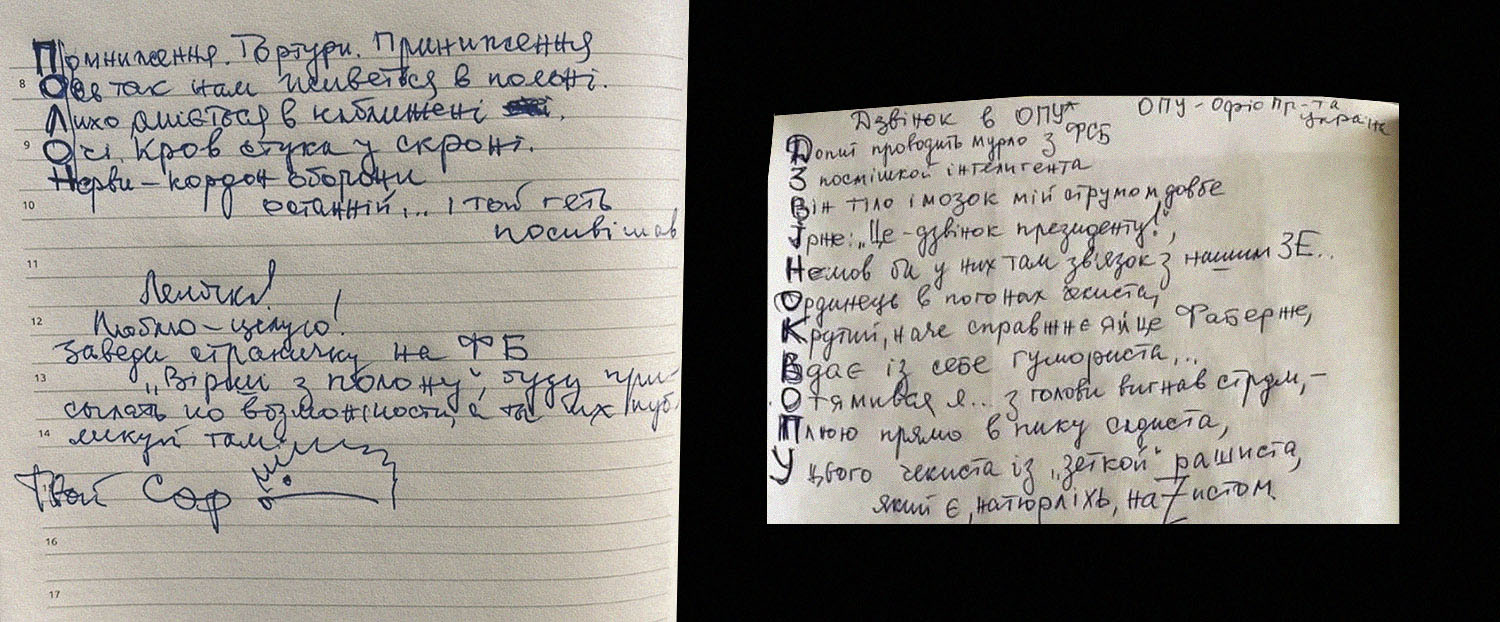 Помниження. Тортури. Приниження
Ось так нам живеться в полоні.
Лихо сміється в
Осі. Кров стука у скроні.
Нерви – кордон оборони
останній,... і той геть
посивішав
Лелічка!
Люблю – цілую!
Заведи страничку на ФБ
„Вірші з полону", буду при-
сылать по возможности, а ты их пуб-
ликуй там
Твой Соф
Дзвінок в ОПУ* ОПУ - Офіс Пр-та
України
Допит проводить мурло з ФСБ
З посмішкой інтелигента
Він тіло і мозок мій струмом довбе
Ірже: „Це - дзвінок президенту!",
Немов би у них там зв'язок з нашим ЗЕ..
Ординець в погонах чекиста,
Крутий, наче справжнє яйце Фаберже,
Вдає із себе гумориста...
Отямився я... з голови вигнав струм, –
Плюю прямо в пику садиста,
У цього чекиста із „зеткой" рашиста,
який є, натюрліхь, наZистом